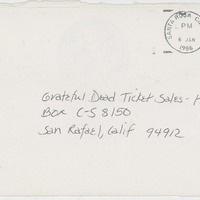 SANTA ROSA CA
PM
6 JAN
1986
Grateful Dead Ticket Sales - H
Box C-S 8150
San Rafael, Calif 94912